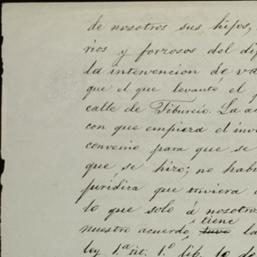 de nosotros sus hijos,
rios y forzosos del di
la intervencion de va
que el que levante el
calle de Tiburcio. La a
con que empieza el inv
convenio para que se
que se hizo; no hab
jurídica que viviera
lo que solo á nosotro
tiene
nuestro acuerdo, la
ley 1.ª tit. 1.º lib. 10 de